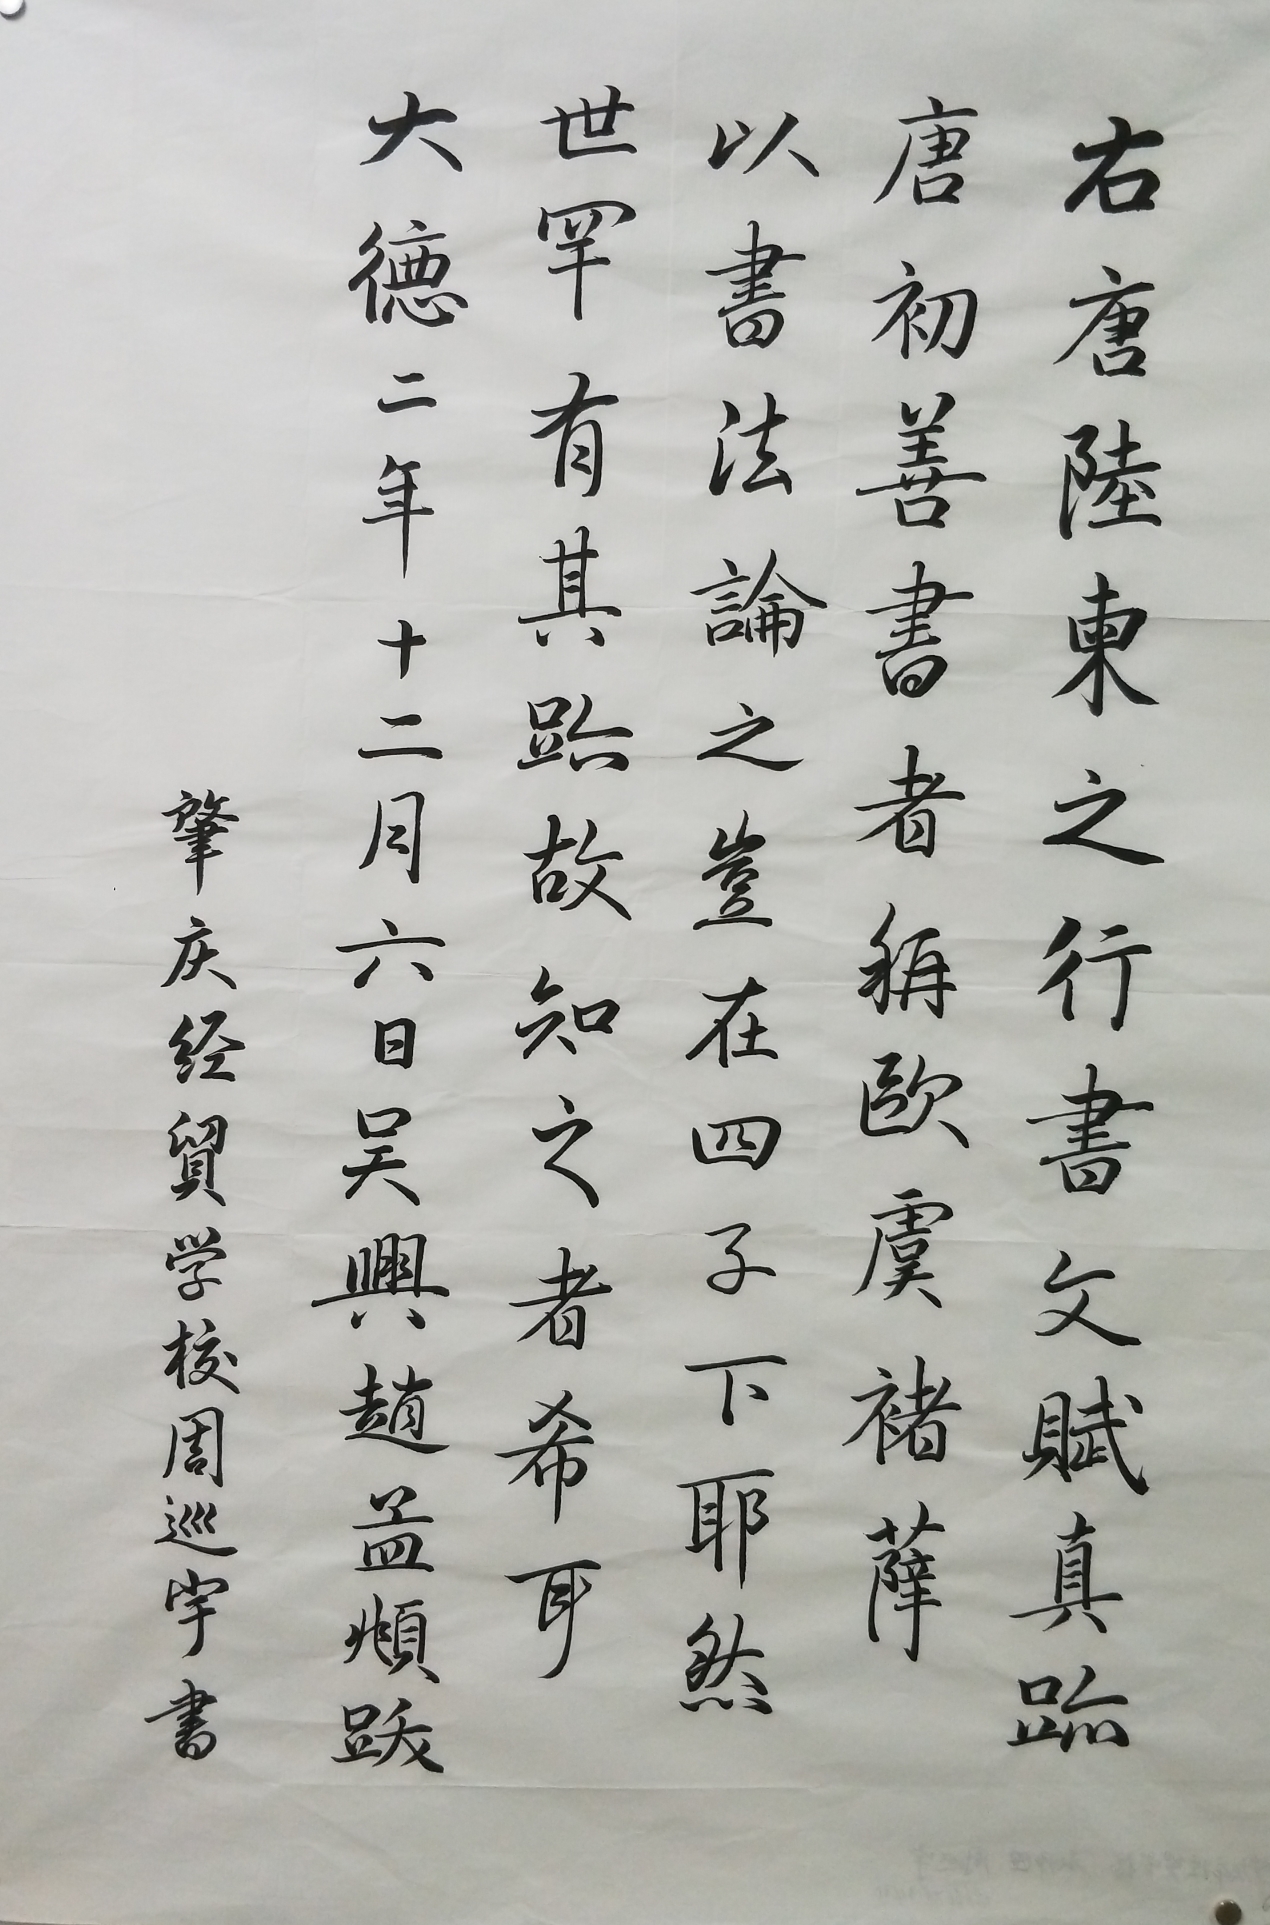 右唐陸柬之行書文賦真跡
唐初善書者稱歐虞褚薛
以書法論之豈在四子下耶然
世罕有其跡故知之者希耳
大德二年十二月六日吴興趙孟頫跋
肇庆经貿学校周巡宇書